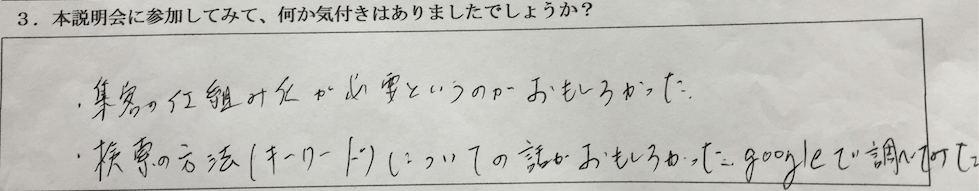 3．本説明会に参加してみて、何か気付きはありましたでしょうか？
・集客の仕組み化が必要というのがおもしろかった。
・検索の方法（キーワード）についての話がおもしろかった。googleで調べてみた